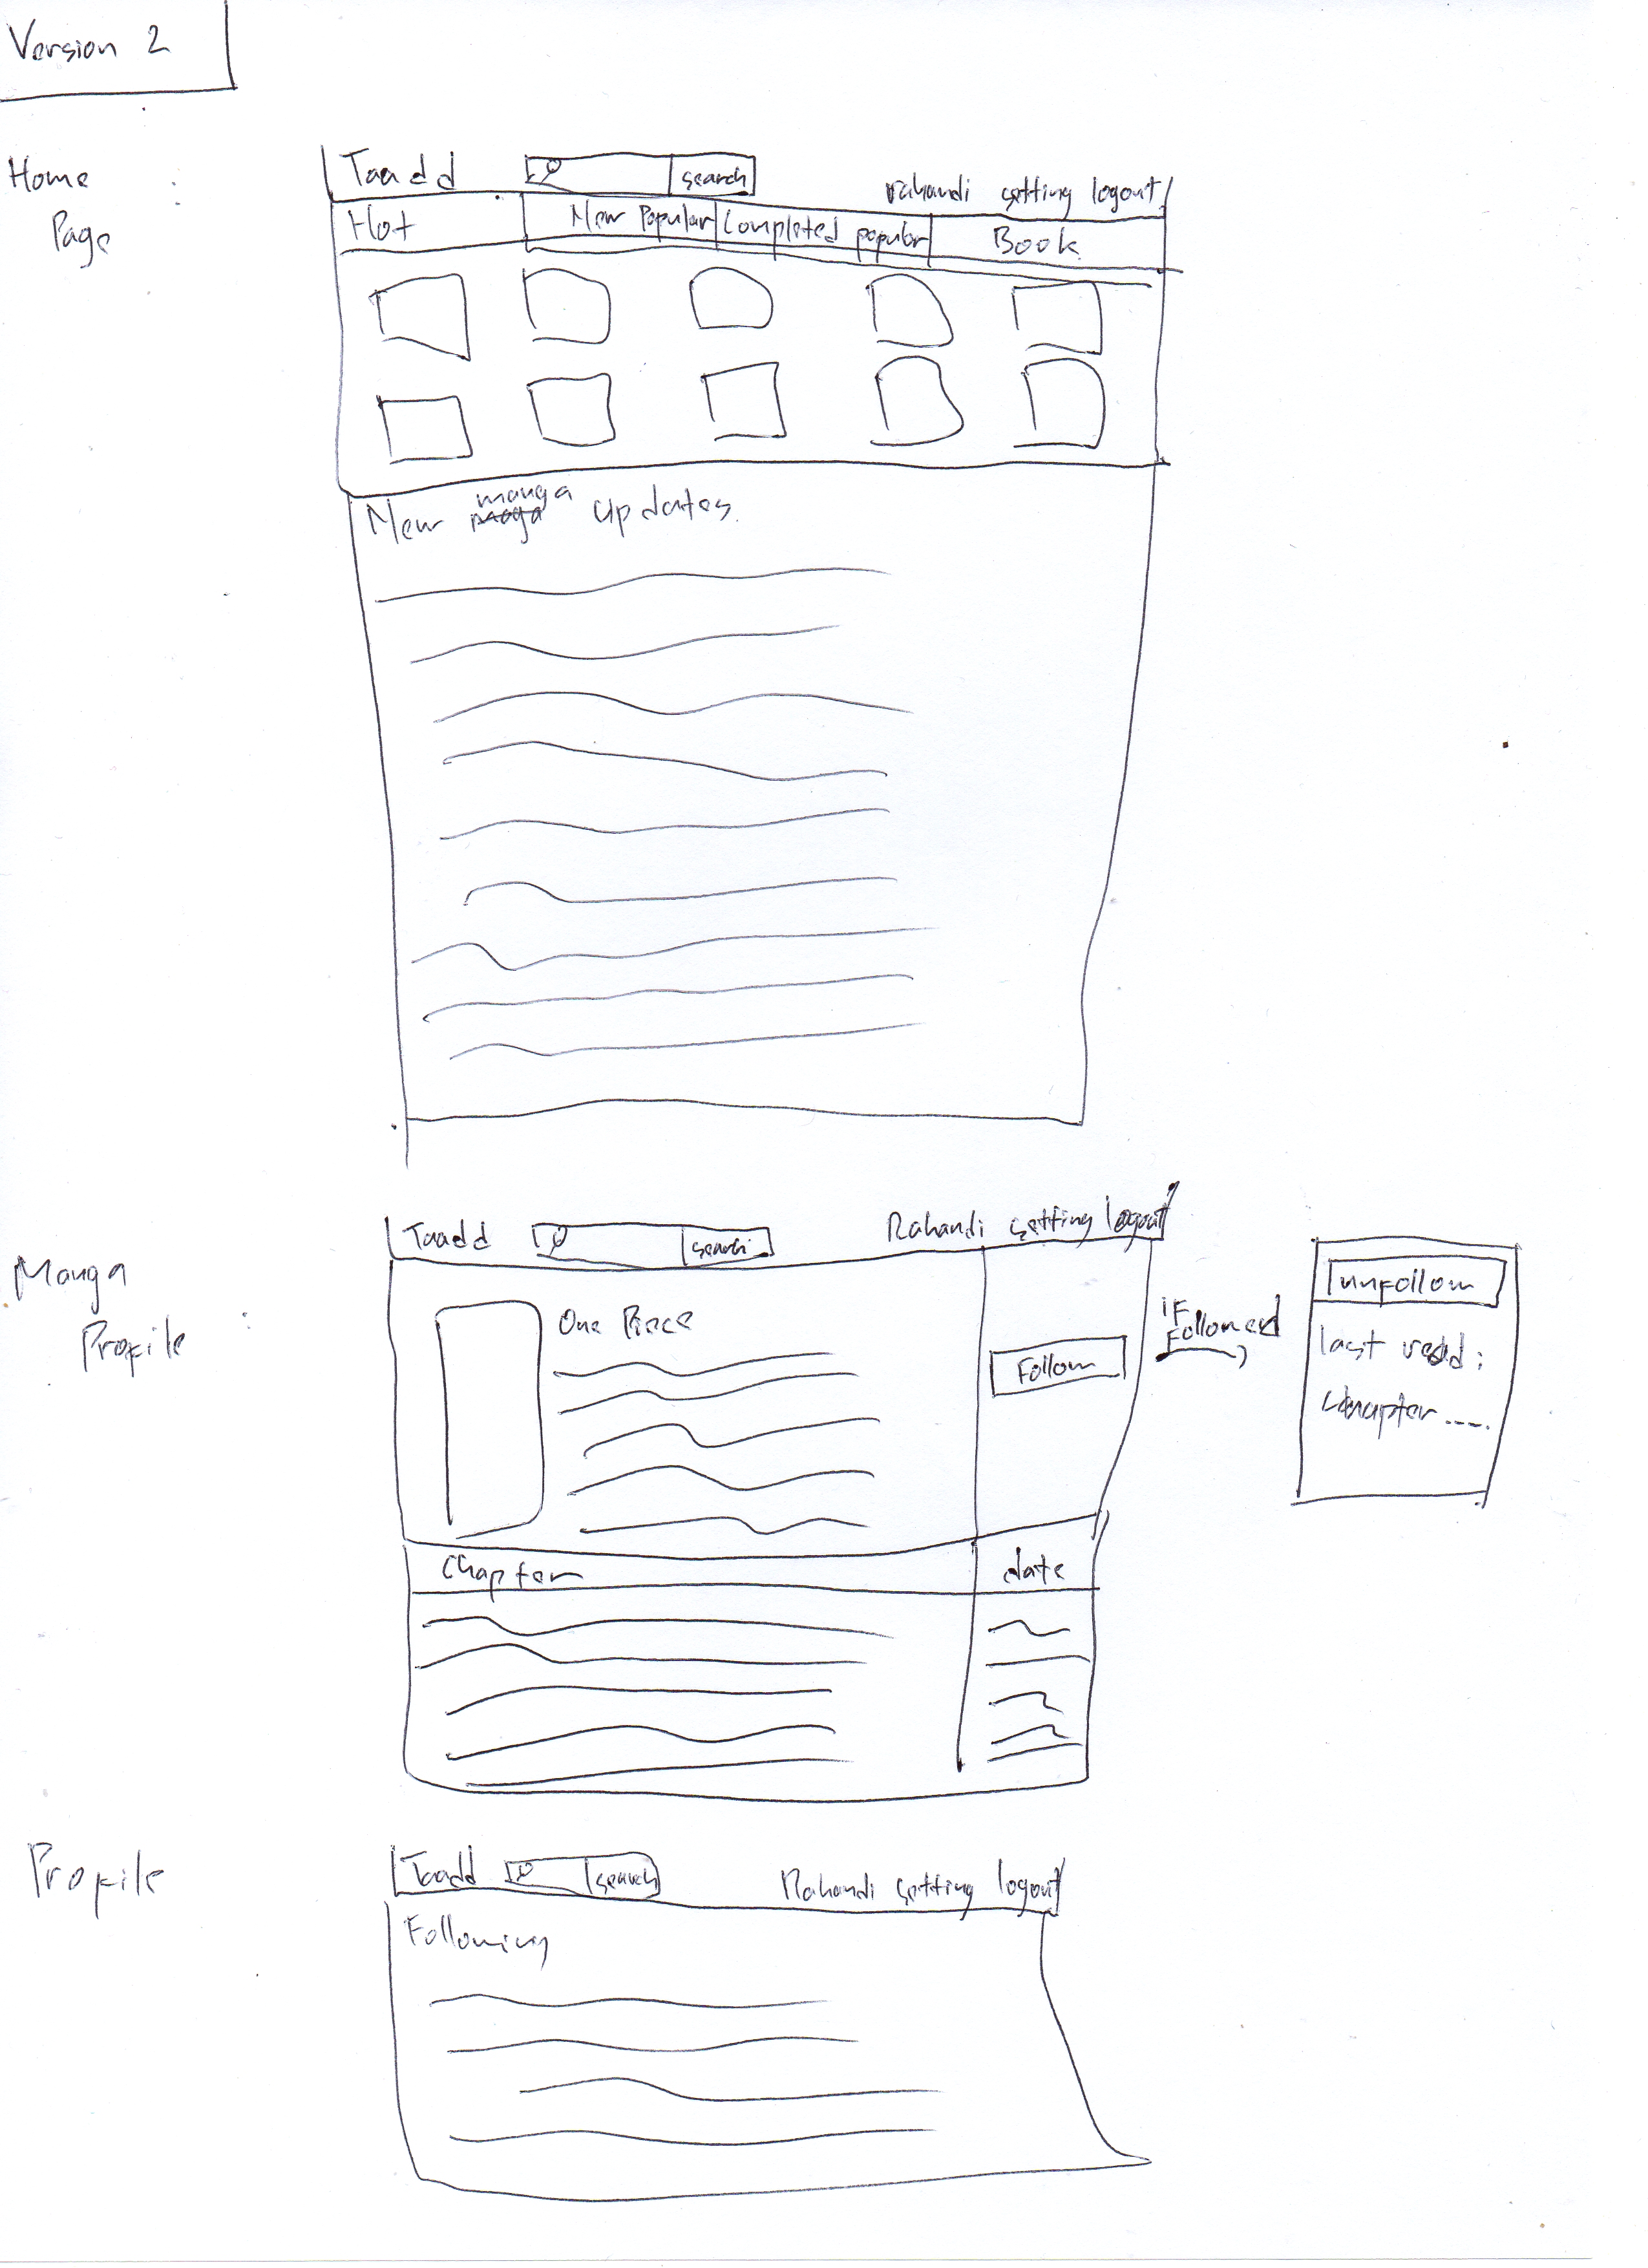 Version 2
Home
Page
:
Taadd search rahandi setting logout
Hot New Popular Completed popular Book
manga
New updates.
Manga
Profile
:
Taadd search Rahandi setting logout
One Piece
Follow
if
Followed
unfollow
last read :
chapter ----.
Chapter date
Profile
Taadd search Rahandi setting logout
Following